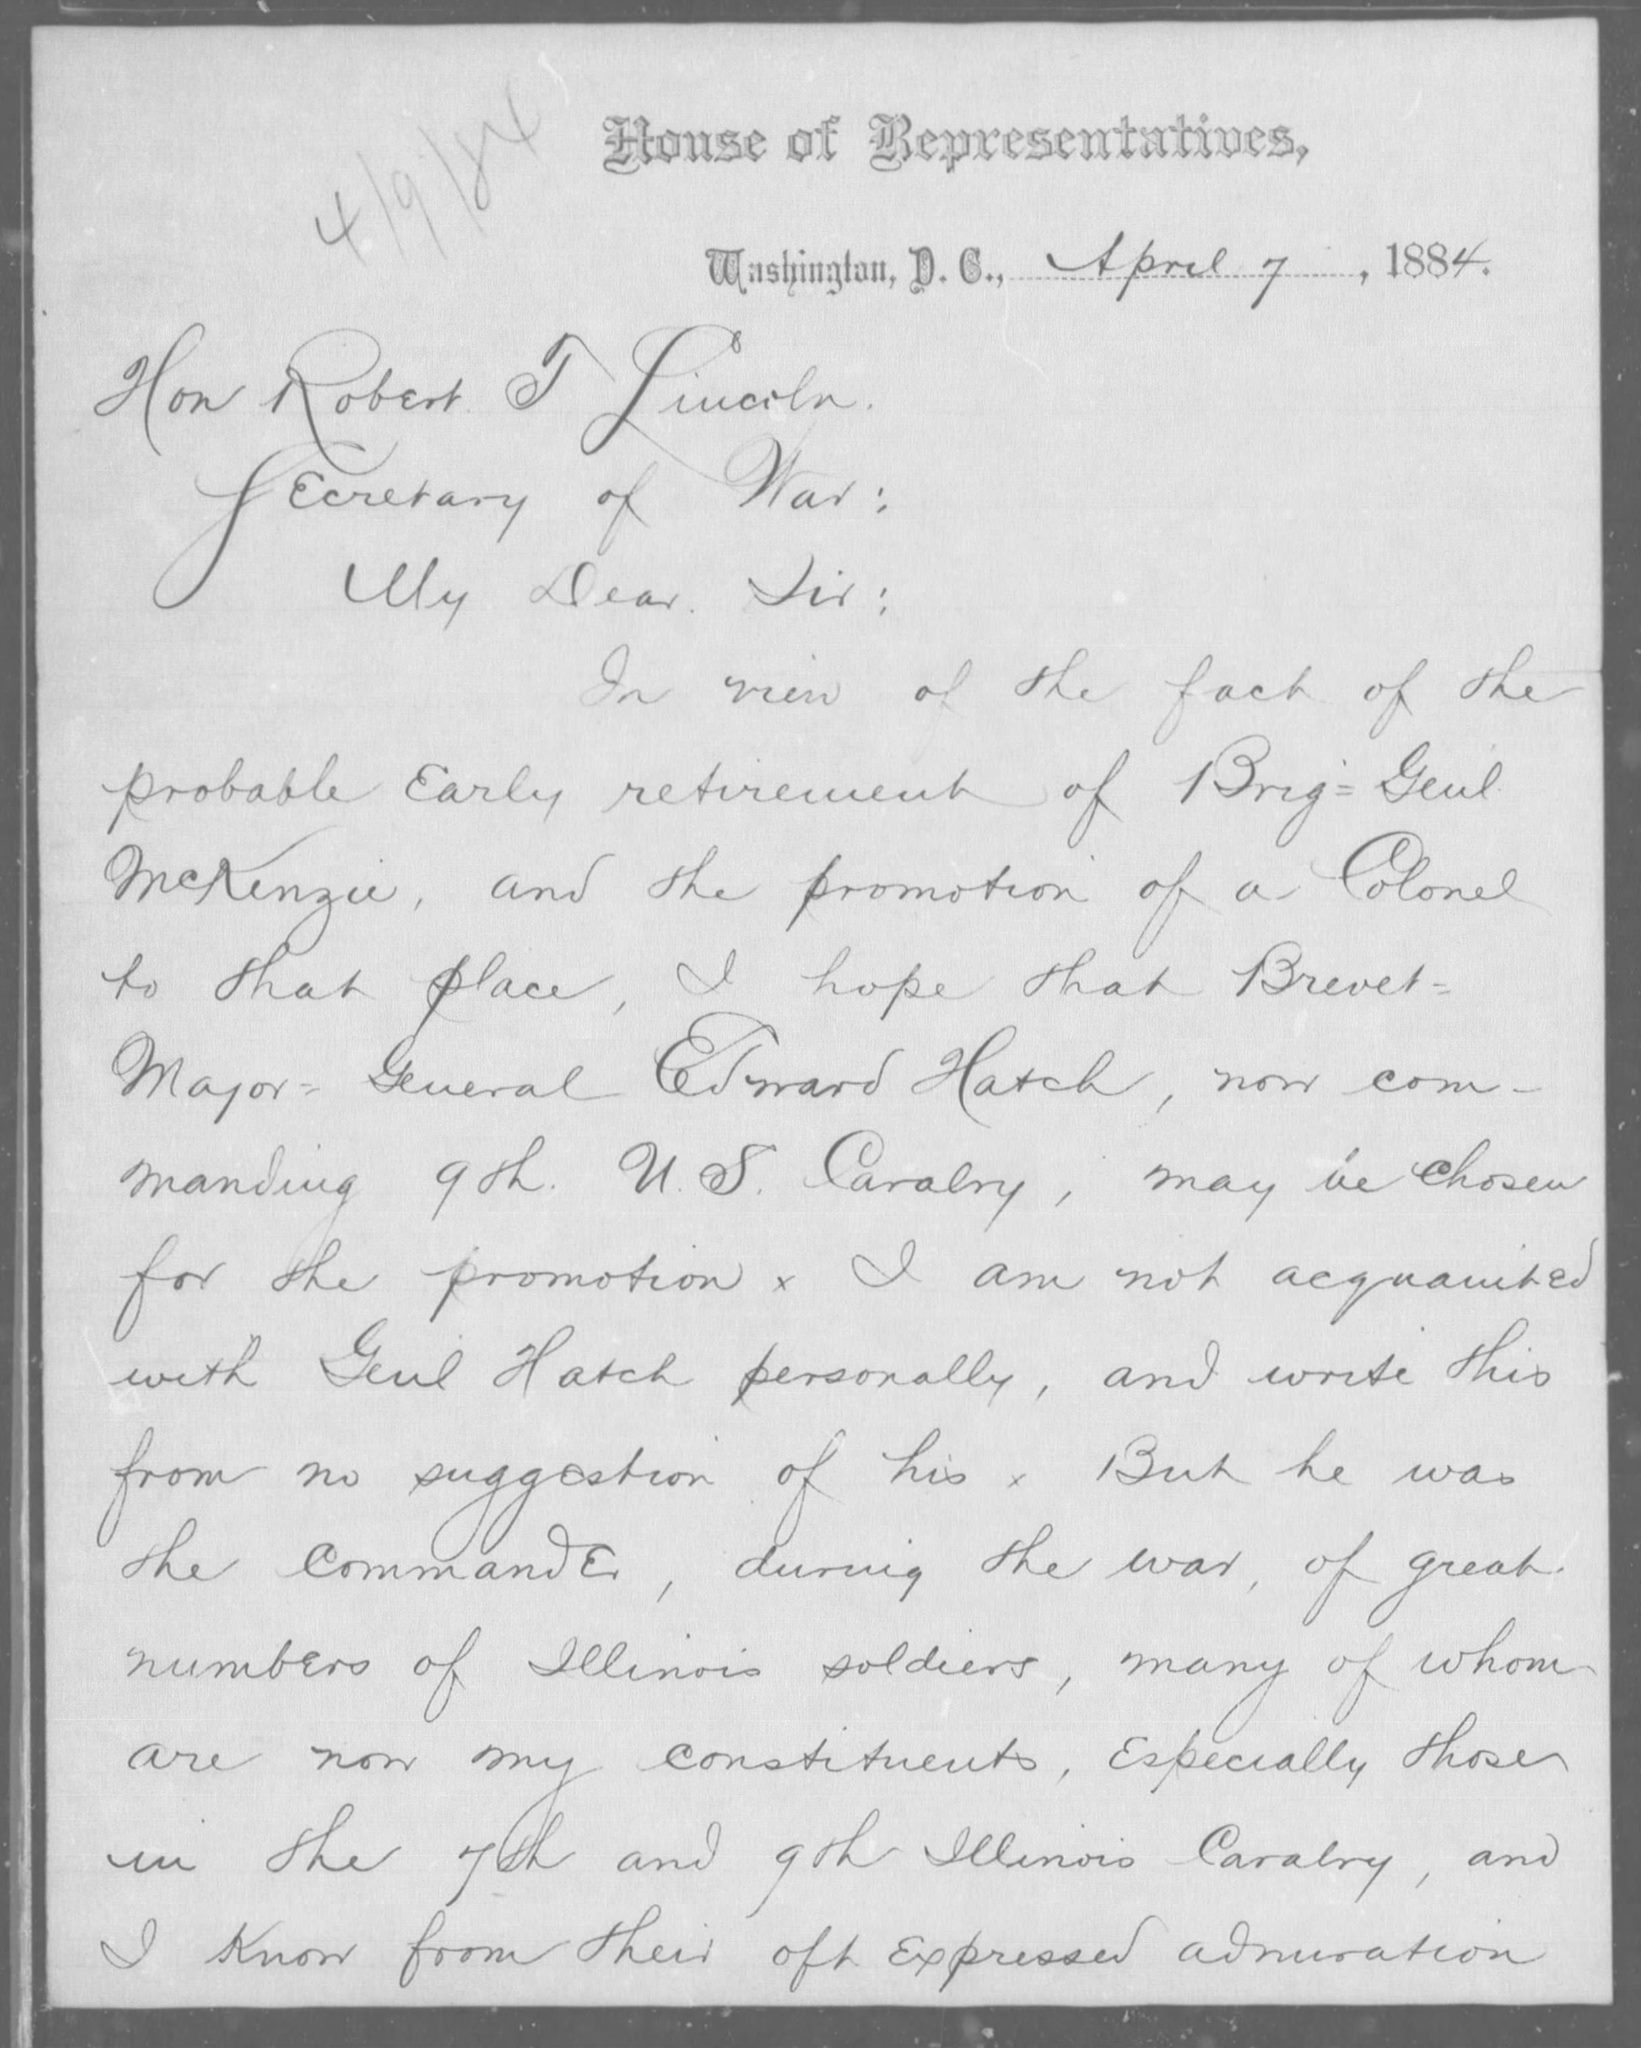 4/9/84
House of Representatives,
Washington, D. C., April 7, 1884.
Hon Robert T Lincoln.
Secretary of War:
My Dear Sir:
In view of the fact of the
probable Early retirement of Brig= Genl
McKenzie, and the promotion of a Colonel
to that place, I hope that Brevet=
Major= General Edward Hatch, now com-
manding 9th. U.S. Cavalry, may be chosen
for the promotion x I am not acquainted
with Genl Hatch personally, and write this
from no suggestion of his x But he was
the Commander, during the war, of great
numbers of Illinois soldiers, many of whom
are now my constituents, Especially those
in the 7th and 9th Illinois Cavalry, and
I Know from their oft Expressed admiration